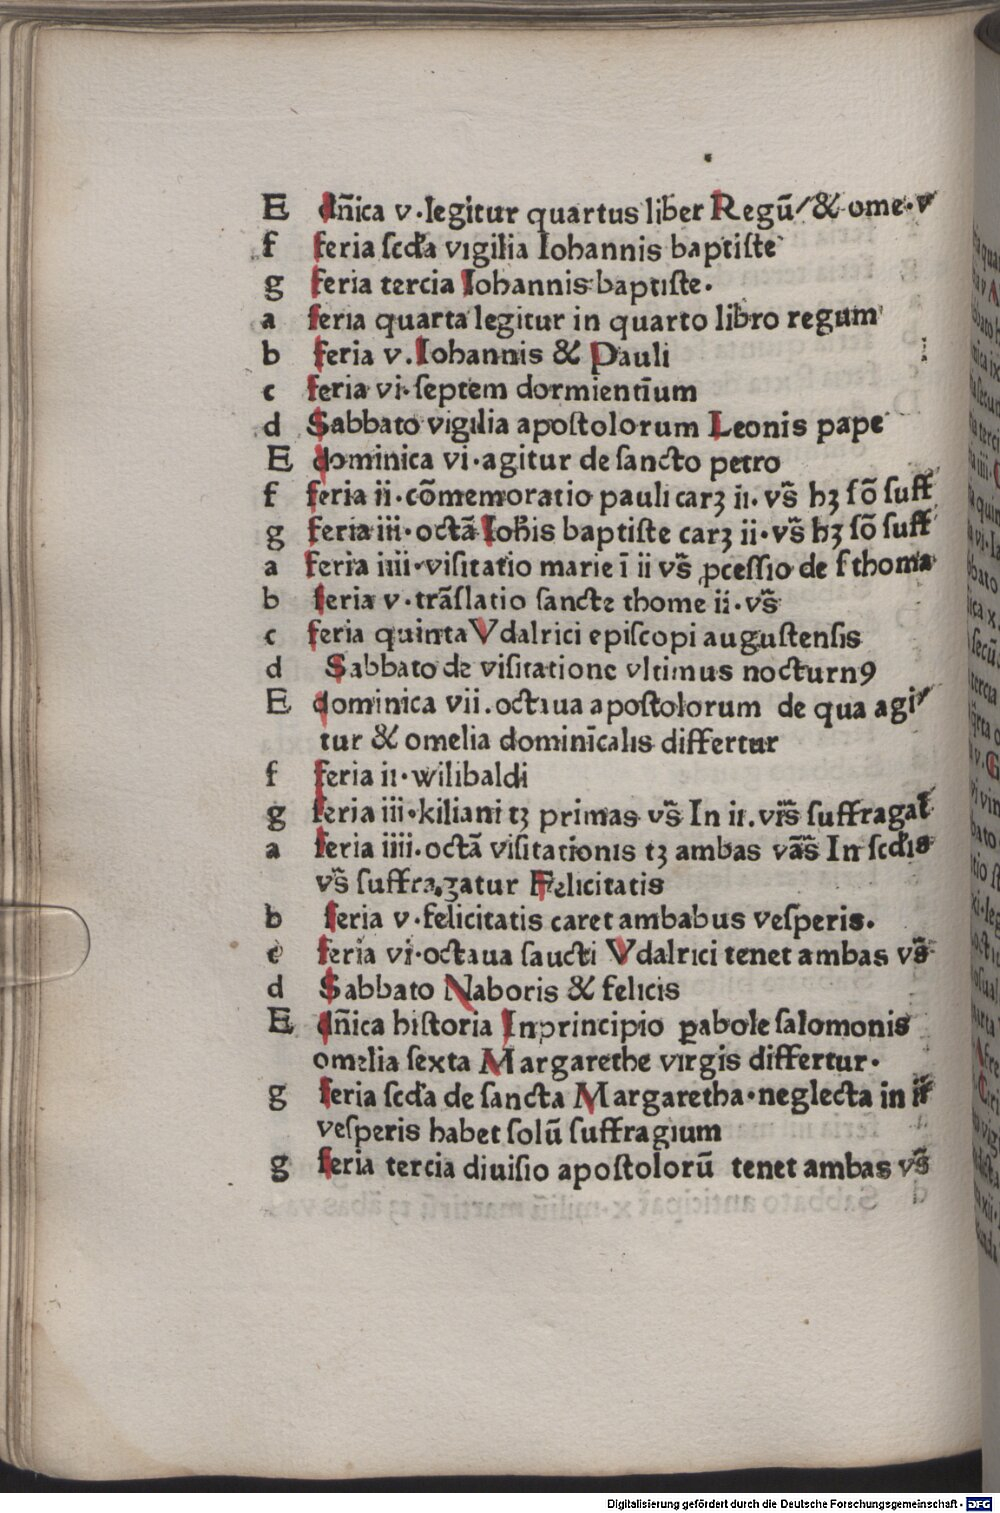 E dn̄ica v·legitur quartus liber Regū/& ome·v
f feria scd̄a vigilia Iohannis baptiste
g feria tercia Iohannis baptiste·
a feria quarta legitur in quarto libro regum
b feria v.Iohannis & Pauli
c feria vi·septem dormientiū̄m
d Sabbato vigilia apostolorum Leonis pape
E dominica vi·agitur de sancto petro
f feria ii·cōmemoratio pauli carꝫ ii·vs̄ hꝫ sō suff
g feria iii·octā Ioh̄is baptiste carꝫ ii·vs̄ hꝫ sō suff
a feria iiii·visitatio marie ī ii vs̄ ꝓcessio de s thoma
b feria v·trāslatio sancte thome ii·vs̄
c feria quinta Vdalrici episcopi augustensis
d Sabbato de visitatione vltimus nocturnꝯ
E dominica vii.octaua apostolorum de qua agi
tur & omelia dominic̄alis differtur
f feria ii·wilibaldi
g feria iii·kiliani tꝫ primas vs̄ In ii.vr̄s suffragat̄
a feria iiii·octā visitationis tꝫ ambas vās̄ In scd̄is
vs̄ suffragatur Felicitatis
b feria v·felicitatis caret ambabus vesperis.
c feria vi·octaua saucti Vdalrici tenet ambas vs̄
d Sabbato Naboris & felicis
E dn̄ica historia Inprincipio ꝑabole salomonis
omelia sexta Margarethe virgis differtur·
g feria scd̄a de sancta Margaretha·neglecta in ii
vesperis habet solū suffragium
g feria tercia diuisio apostolorū tenet ambas vs̄
Digitalisierung gefördert durch die Deutsche Forschungsgemeinschaft - DFG